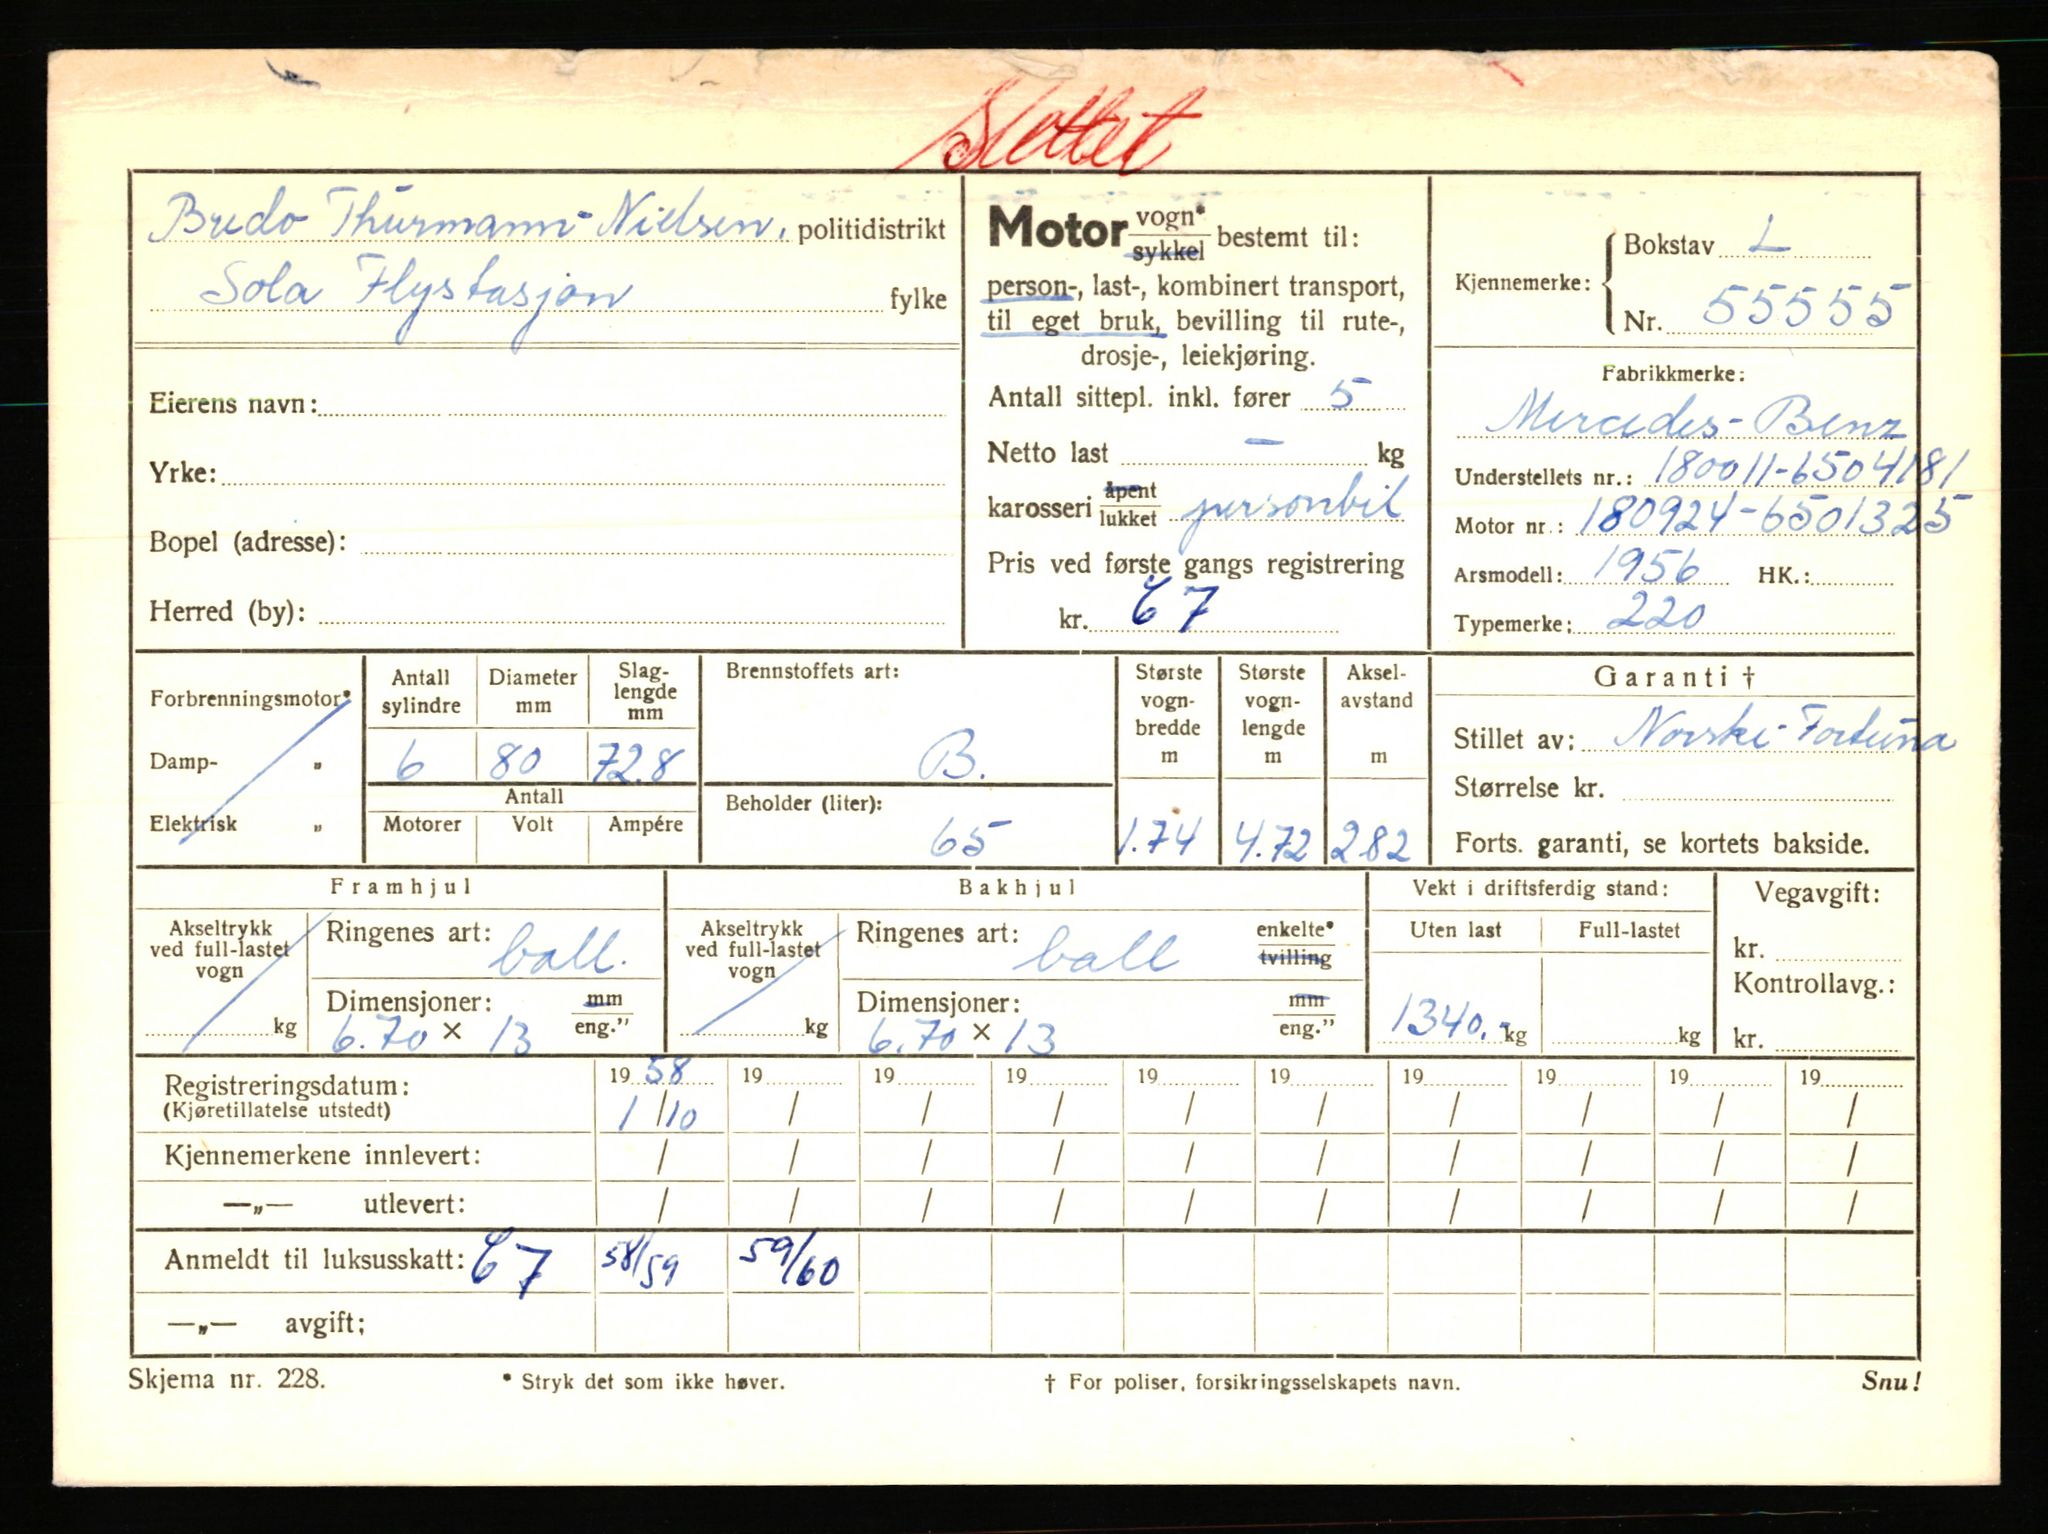 Slettet
Bredo Thurmann-Nielsen, politidistrikt
Sola Flystasjon fylke
Eierens navn:
Yrke:
Bopel (adresse):
Herred (by):
Motor vogn* sykkel bestemt til:
person-, last-, kombinert transport,
til eget bruk, bevilling til rute-,
drosje-, leiekjøring.
Antall sittepl. inkl. fører 5
Netto last — kg
karosseri åpent lukket personbil
Pris ved første gangs registrering
kr. 67
Bokstav L
Kjennemerke:
Nr. 55555
Fabrikkmerke:
Mercedes-Benz
Understellets nr.: 180011-6504181
Motor nr.: 180924-6501325
Arsmodell: 1956 HK.:
Typemerke: 220
Forbrenningsmotor*
Damp- "
Elektrisk "
Antall sylindre Diameter mm Slag-lengde mm
6 80 72.8
Antall
Motorer Volt Ampére
Brennstoffets art:
B.
Beholder (liter):
65
Største vogn-bredde m
1.74
Største vogn-lengde m
4.72
Aksel-avstand m
2.82
Garanti †
Stillet av: Norske-Fortuna
Størrelse kr.
Forts. garanti, se kortets bakside.
Framhjul
Akseltrykk ved full-lastet vogn
kg
Ringenes art: ball.
Dimensjoner: mm eng."
6.70 × 13
Bakhjul
Akseltrykk ved full-lastet vogn
kg
Ringenes art: ball enkelte* tvilling
Dimensjoner: mm eng."
6.70 × 13
Vekt i driftsferdig stand:
Uten last Full-lastet
1340.- kg kg
Vegavgift:
kr.
Kontrollavg.:
kr.
Registreringsdatum: 19 58 19 19 19 19 19 19 19 19 19
(Kjøretillatelse utstedt) 1/10 / / / / / / / / /
Kjennemerkene innlevert: / / / / / / / / / /
—„— utlevert: / / / / / / / / / /
Anmeldt til luksusskatt: 67 58/59 59/60
—„— avgift;
Skjema nr. 228. * Stryk det som ikke høver. † For poliser, forsikringsselskapets navn. Snu!